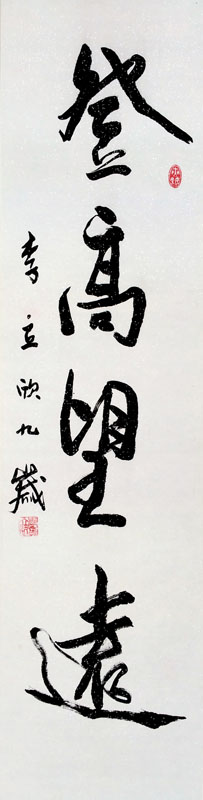 登高望遠
李立欣九歲